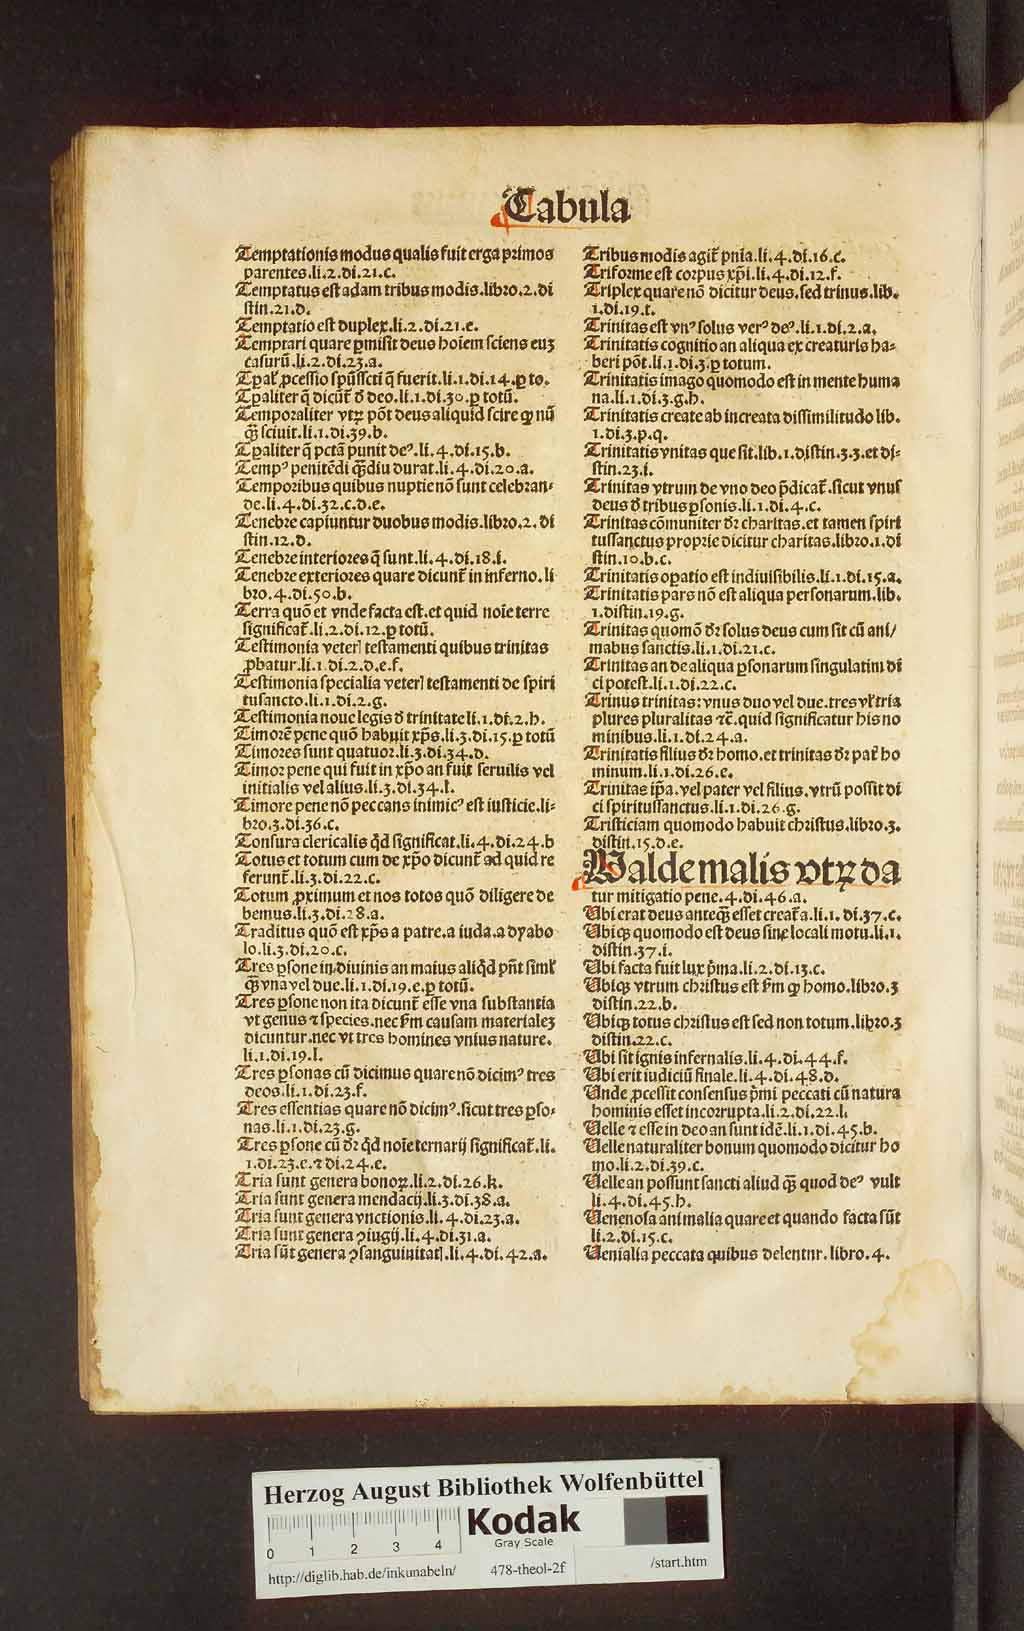 Tabula
Temptationis modus qualis fuit erga primos
parentes.li.2.di.21.c.
Temptatus est adam tribus modis.libro.2.di
stin.21.d.
Temptatio est duplex.li.2.di.21.e.
Temptari quare ꝑmisit deus hoīem sciens euꝫ
casurū.li.2.di.23.a.
Tꝑal' ꝓcessio spūssc̄ti q̄ fuerit.li.1.di.14.ꝑ to.
Tꝑaliter q̄ dicūt̄ d̄ deo.li.1.di.30.ꝑ totū.
Temporaliter vtꝝ pōt deus aliquid scire qđ nū
q̄ꝫ sciuit.li.1.di.39.b.
Tꝑaliter q̄ pctā punit deꝰ.li.4.di.15.b.
Tempꝰ penitēdi q̄ꝫdiu durat.li.4.di.20.a.
Temporibus quibus nuptie nō sunt celebran-
de.li.4.di.32.c.d.e.
Tenebre capiuntur duobus modis.libro.2.di
stin.12.d.
Tenebre interiores q̄ sunt.li.4.di.18.i.
Tenebre exteriores quare dicunt̄ in inferno.li
bro.4.di.50.b.
Terra quō et vnde facta est.et quid noīe terre
significat̄.li.2.di.12.ꝑ totū.
Testimonia veterꝭ testamenti quibus trinitas
ꝓbatur.li.1.di.2.d.e.f.
Testimonia specialia veterꝭ testamenti de spiri
tusancto.li.1.di.2.g.
Testimonia noue legis d̄ trinitate li.1.di.2.h.
Timorē pene quō habuit xp̄s.li.3.di.15.ꝑ totū
Timores sunt quatuor.li.3.di.34.d.
Timor pene qui fuit in xp̄o an fuit seruilis vel
initialis vel alius.li.3.di.34.l.
Timore pene nō peccans inimicꝰ est iusticie.li-
bro.3.di.36.c.
Tonsura clericalis qd̄ significat.li.4.di.24.b
Totus et totum cum de xp̄o dicunt̄ ad quid re
ferunt̄.li.3.di.22.c.
Totum ꝓximum et nos totos quō diligere de
bemus.li.3.di.28.a.
Traditus quō est xp̄s a patre.a iuda.a dyabo
lo.li.3.di.20.c.
Tres ꝑsone in diuinis an maius aliqd̄ pn̄t siml'
q̄ꝫ vna vel due.li.1.di.19.e.ꝑ totū.
Tres ꝑsone non ita dicunt̄ esse vna substantia
vt genus ⁊ species.nec fm̄ causam materialeꝫ
dicuntur.nec vt tres homines vnius nature.
li.1.di.19.l.
Tres ꝑsonas cū dicimus quare nō dicimꝰ tres
deos.li.1.di.23.f.
Tres essentias quare nō dicimꝰ.sicut tres ꝑso-
nas.li.1.di.23.g.
Tres ꝑsone cū dr̄ qd̄ noīe ternarij significat̄.li.
1.di.23.e.⁊ di.24.e.
Tria sunt genera bonoꝝ.li.2.di.26.k.
Tria sunt genera mendacij.li.3.di.38.a.
Tria sunt genera vnctionis.li.4.di.23.a.
Tria sunt genera ꝯiugij.li.4.di.31.a.
Tria sūt genera ꝯsanguinitatꝭ.li.4.di.42.a.
Tribus modis agit̄ pn̄ia.li.4.di.16.c.
Triforme est corpus xp̄i.li.4.di.12.f.
Triplex quare nō dicitur deus.sed trinus.lib.
1.di.19.t.
Trinitas est vnꝰ solus verꝰ deꝰ.li.1.di.2.a.
Trinitatis cognitio an aliqua ex creaturis ha-
beri pōt.li.1.di.3.ꝑ totum.
Trinitatis imago quomodo est in mente huma
na.li.1.di.3.g.h.
Trinitatis create ab increata dissimilitudo lib.
1.di.3.p.q.
Trinitatis vnitas que sit.lib.1.distin.3.3.et di-
stin.23.i.
Trinitas vtrum de vno deo p̄dicat̄.sicut vnus
deus d̄ tribus ꝑsonis.li.1.di.4.c.
Trinitas cōmuniter dr̄ charitas.et tamen spiri
tussanctus proprie dicitur charitas.libro.1.di
stin.10.b.c.
Trinitatis oꝑatio est indiuisibilis.li.1.di.15.a.
Trinitatis pars nō est aliqua personarum.lib.
1.distin.19.g.
Trinitas quomō dr̄ solus deus cum sit cū ani/
mabus sanctis.li.1.di.21.c.
Trinitas an de aliqua ꝑsonarum singulatim di
ci potest.li.1.di.22.c.
Trinus trinitas: vnus duo vel due.tres vl' tria
plures pluralitas ⁊c̄.quid significatur his no
minibus.li.1.di.24.a.
Trinitatis filius dr̄ homo.et trinitas dr̄ pat̄ ho
minum.li.1.di.26.e.
Trinitas ip̄a.vel pater vel filius.vtrū possit di
ci spiritussanctus.li.1.di.26.g.
Tristiciam quomodo habuit christus.libro.3.
distin.15.d.e.
Walde malis vtꝝ da
tur mitigatio pene.4.di.46.a.
Ubi erat deus anteq̄ꝫ esset creat̄a.li.1.di.37.c.
Ubiqꝫ quomodo est deus sine locali motu.li.1.
distin.37.i.
Ubi facta fuit lux p̄ma.li.2.di.13.c.
Ubiqꝫ vtrum christus est fm̄ qđ homo.libro.3
distin.22.b.
Ubiqꝫ totus christus est sed non totum.libro.3
distin.22.c.
Ubi sit ignis infernalis.li.4.di.44.f.
Ubi erit iudiciū finale.li.4.di.48.d.
Unde ꝓcessit consensus p̄mi peccati cū natura
hominis esset incorrupta.li.2.di.22.l.
Uelle ⁊ esse in deo an sunt idē.li.1.di.45.b.
Uelle naturaliter bonum quomodo dicitur ho
mo.li.2.di.39.c.
Uelle an possunt sancti aliud q̄ꝫ quod deꝰ vult
li.4.di.45.h.
Uenenosa animalia quare et quando facta sūt
li.2.di.15.c.
Uenialia peccata quibus delentur.libro.4.
Herzog August Bibliothek Wolfenbüttel
Kodak
Gray Scale
0 1 2 3 4
http://diglib.hab.de/inkunabeln/ 478-theol-2f /start.htm